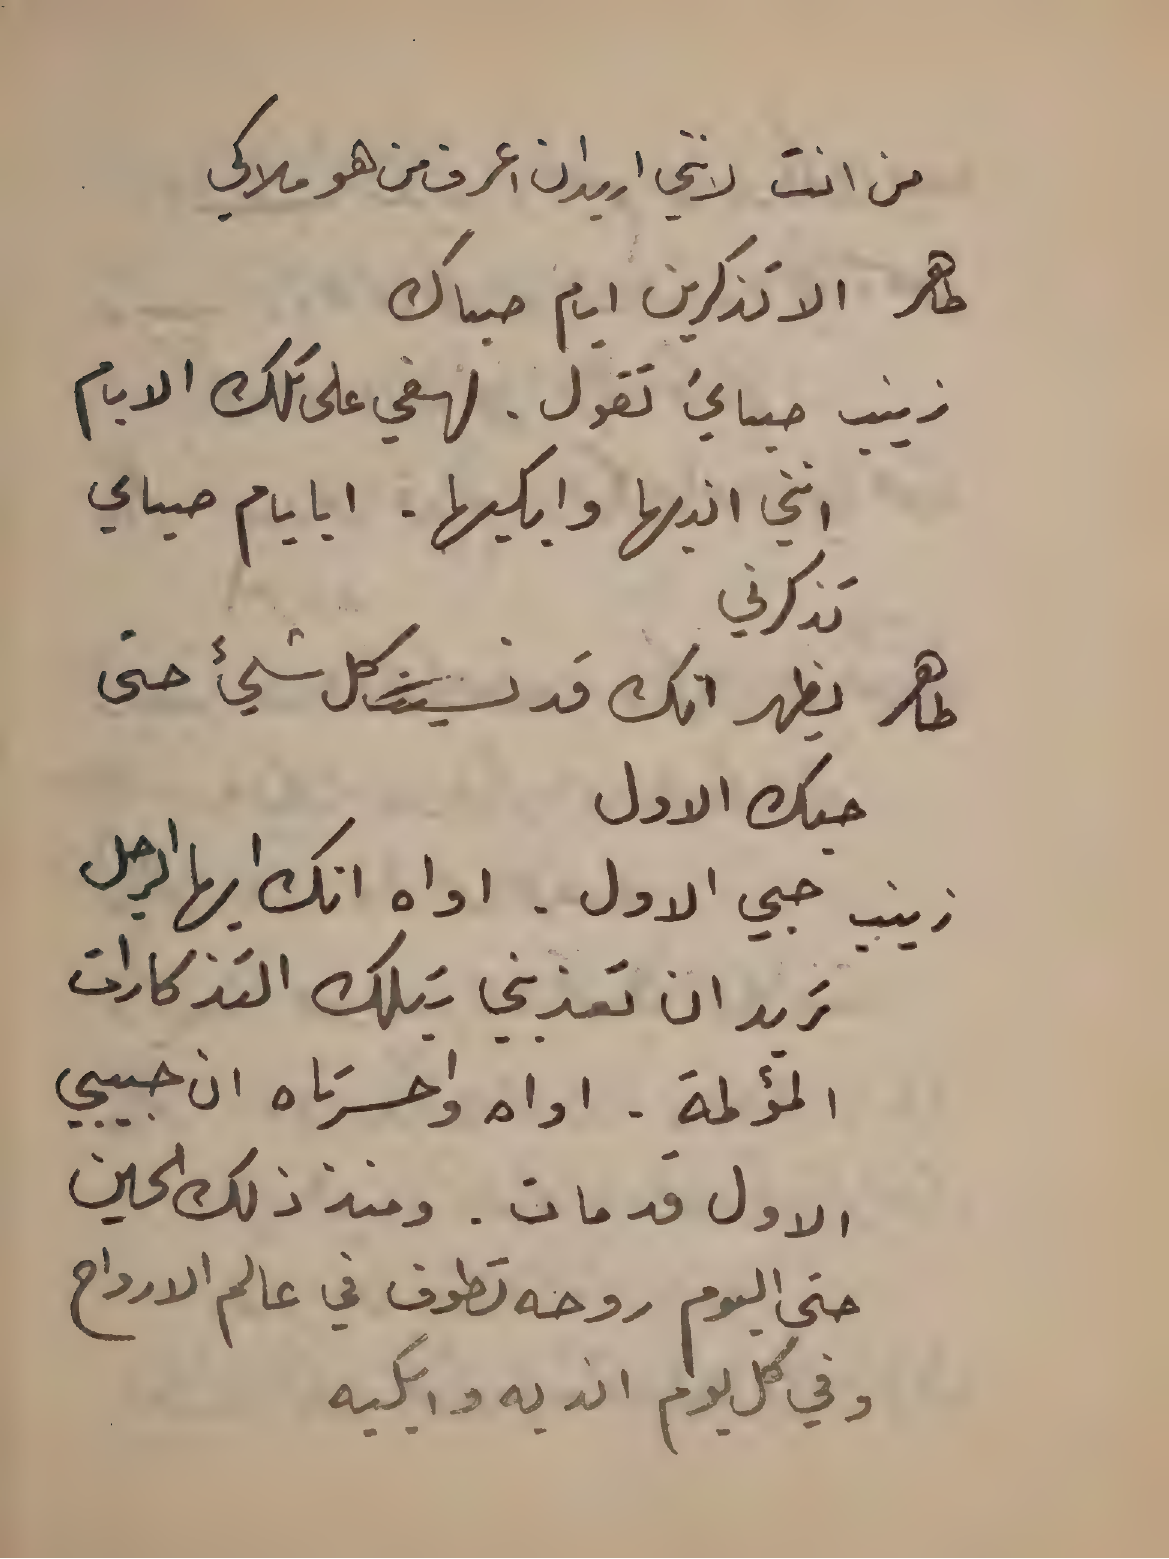 من انت لانني اريد ان اعرف من هو ملاكي
طاهر الا تذكرين ايام صباك
زينب صباي تقول . لهفي على تلك الايام
انني اندبها وابكيها . ايا يام صباي
تذكرني
طاهر يظهر انك قد نسيت كل شيئ حتى
حبك الاول
زينب حبي الاول . اواه انك ايها الرجل
تريد ان تعذبني بتلك التذكارات
المؤلمة . اواه واحسرتاه ان حبيبي
الاول قد مات . ومنذ ذلك الحين
حتى اليوم روحه تطوف في عالم الارواح
وفي كل يوم اندبه وابكيه